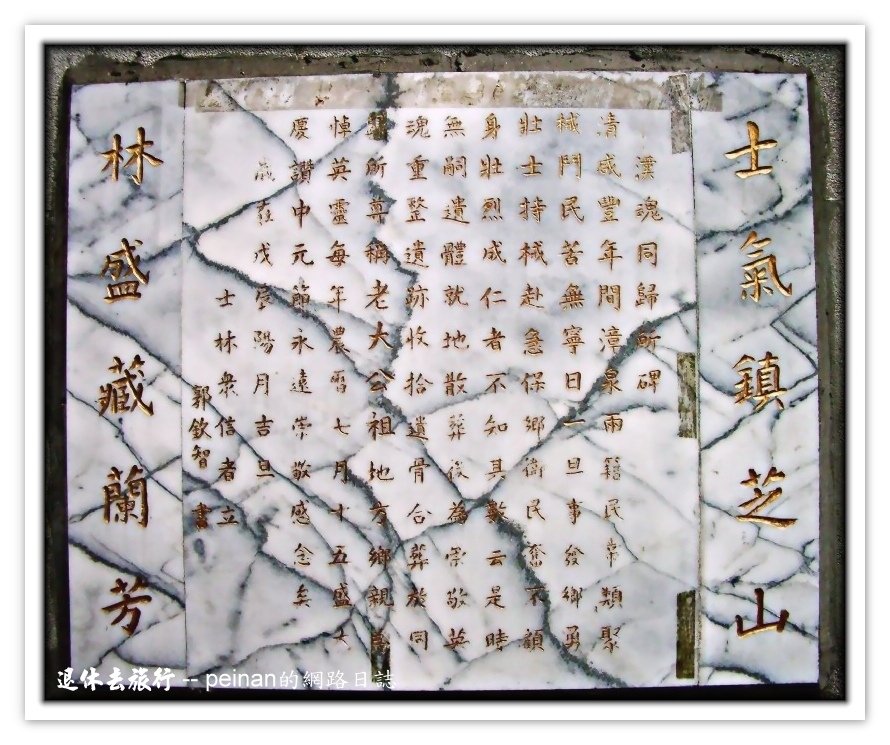 士氣鎮芝山
漢魂同歸所碑
清咸豐年間漳泉兩籍民常類聚
械鬥民苦無寧日一旦事發鄉勇
壯士持械赴急保鄉衛民奮不顧
身壯烈成仁者不知其數云是時
無嗣遺體就地散葬後為崇敬英
魂重整遺跡收拾遺骨合葬於同
所尊稱老大公祖地方鄉親
悼英靈每年農曆七月十五盛大
慶讚中元節永遠崇敬感念矣
歲戊辰陽月吉旦
士林眾信者立
郭欽智 書
林盛藏蘭芳
退休去旅行 -- peinan的網路日誌